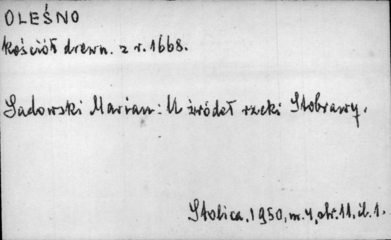 OLEŚNO
Kościół drewn. z r. 1668.
Sadowski Marian: U źródeł rzeki Stobrawy.
Stolica, 1950, nr. 4, str. 11, il. 1.